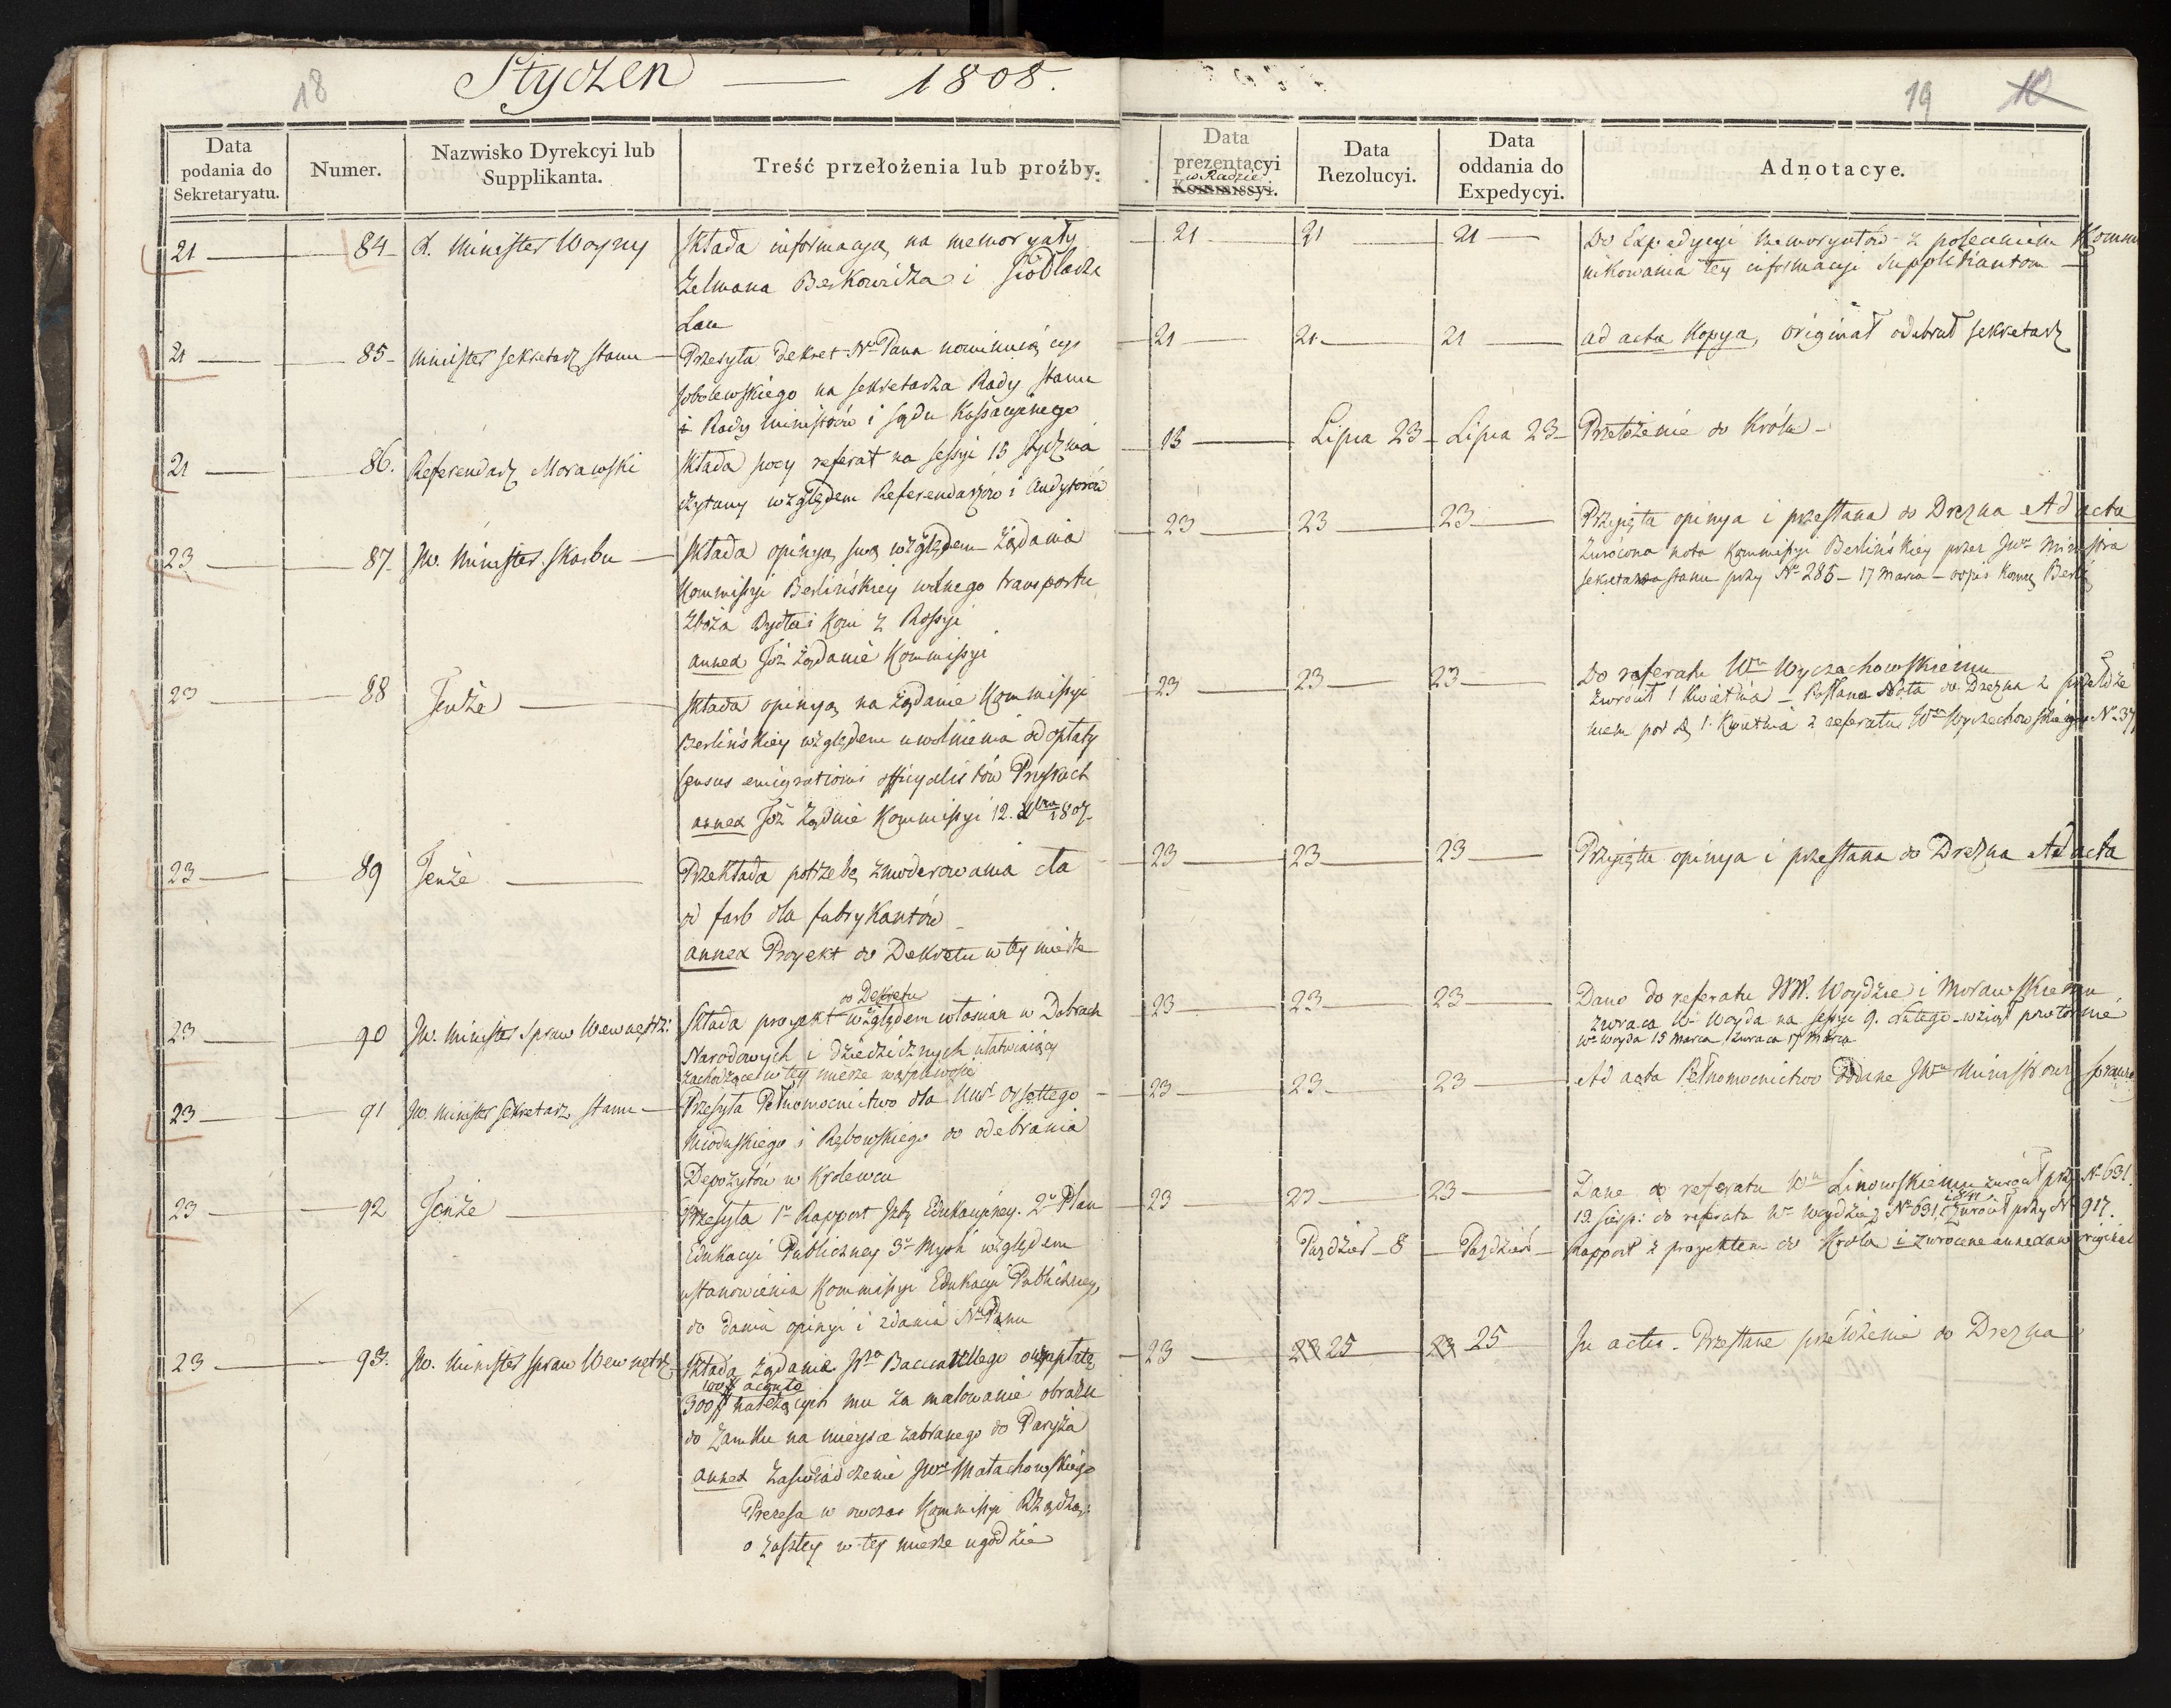 18
Styczen — 1808.
Data podania do Sekretaryatu.
Numer.
Nazwisko Dyrekcyi lub Supplikanta.
Treść przełożenia lub proźby.
21 — 84 Minister Woyny Składa informacyą na memoryały
Zelmana Berkowicza i
Lau
21 — 85 Minister Sekretarz Stanu — Przesyła Dekret No Pana nominuiący
Sobolewskiego na Sekretarza Rady Stanu
i Rady Ministrów i Sądu Kassacyinego
21 — 86. Referendarz Morawski Składa referat na sessyi 15 Stycznia
czytany względem Referendarzów i Audytorów
23 — 87. JW. Minister Skarbu — Składa opinyą swą względem żądania
Kommissyi Berlińskiey wolnego transportu
zboża bydła i koni z Rossyi
annex Toż żądanie Kommissyi
23 — 88 Tenże — Składa opinyą na żądanie Kommissyi
Berlińskiey względem uwolnienia od opłaty
census emigrationis officyalistów Pruskich
annex Toż żądanie Kommissyi 12. 1807.
23 — 89 Tenże — Przekłada potrzebę zmoderowania cła
od farb dla fabrykantów
annex Proyekt do Dekretu w tey mierze
do Dekretu
23 — 90 JW. Minister Spraw Wewnętrz: Składa proyekt względem włościan w Dobrach
Narodowych i dziedzicznych ułatwiaiący
zachodzące w tey mierze wątpliwości
23 — 91 JW. Minister Sekretarz Stanu — Przesyła Pełnomocnictwo dla Ossettego
Mioduskiego i Rębowskiego do odebrania
Depozytów w Krolewcu
23 — 92 Tenże — Przesyła 1o Rapport Izby Edukacyiney. 2o Plan
Edukacyi Publiczney 3o Myśli względem
ustanowienia Kommissyi Edukacyi Publiczney,
do dania opinyi i zdania No Panu
23 — 93. JW. Minister Spraw Wewnętrz. Składa żądanie Bacciarellego o zapłatę
100 # aconto
300 # należących mu za malowanie obrazu
do Zamku na mieysce zabranego do Paryża
annex Zaświadczenie JWo Małachowskiego
Prezesa w owczas Kommissyi Rządzą:
o zaszłey w tey mierze ugodzie
19 10
Data prezentacyi w Radzie Kommissyi.
Data Rezolucyi.
Data oddania do Expedycyi.
Adnotacye.
21 — 21 — 21 — Do Expedycyi memoryałów z poleceniem Kommu
nikowania tey informacyi Supplikantom —
21 — 21 — 21 — ad acta Kopya, originał odebrał Sekretarz
15 — Lipca 23 — Lipca 23 — Przełożenie do Króla —
23 — 23 — 23 — Przyięta opinya i przesłana do Drezna Ad acta
Zwrócona nota Kommissyi Berlińskiey przez JWo Ministra
Sekretarza Stanu przy No 285 — 17 Marca — Berl
23 — 23 — 23 — Do referatu Wu Wyczechowskiemu
zwrócił 1 Kwietnia — Posłana Nota do Drezna z przełoże
niem pod d. 1. Kwietnia z referatu Wo Wyczechowskiego No 37
23 — 23 — 23 — Przyięta opinya i przesłana do Drezna Ad acta
23 — 23 — 23 — Dano do referatu WW. Woydzie i Morawskiemu
zwraca W. Woyda na sessyi 9. Lutego — wziął powtórnie
Wo Woyda 15 Marca zwraca 17 Marca
23 — 23 — 23 — Ad acta Pełnomocnictwo oddane JWu Ministrowi Spraw
23 — 23 — 23 — Dane do referatu Wu Linowskiemu zwrócił przy No 631.
19. Sierp: do referatu Wo Woydzie z No 631, zwrócił przy No 917.
Paździer — 8 — Paździer — Rapport z proyektem do Króla i zwrócone annexa w originale
23 — 23 25 — 23 25 — In actis — Przesłane przełożenie do Drezna